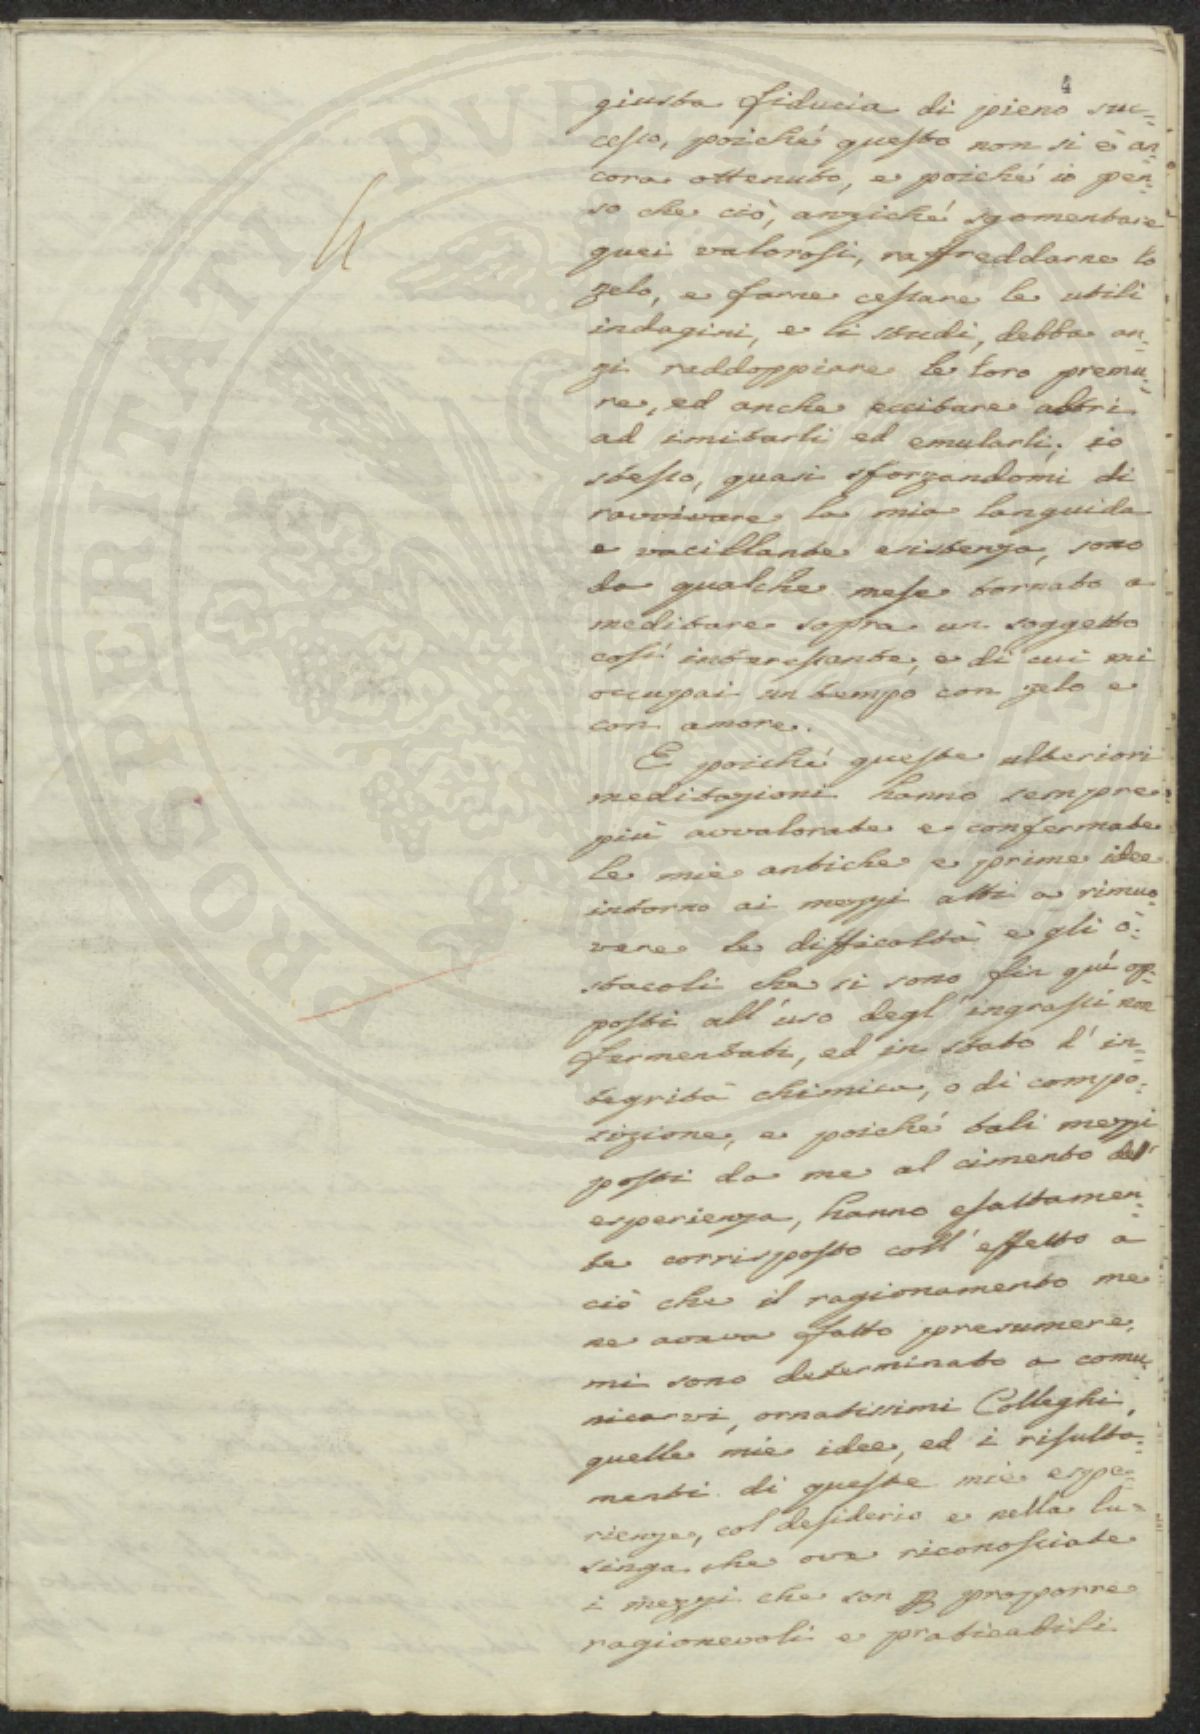 4
giusta fiducia di pieno suc=
cesso, poiché questo non si è an=
cora ottenuto, e poiché io pen=
so che ciò, anziché sgomentare
quei valorosi, raffreddarne lo
zelo, e farne cessare le utili
indagini, e li studi, debba an=
zi raddoppiare le loro premu=
re, ed anche eccitare altri
ad imitarli ed emularli; io
stesso, quasi sforzandomi di
ravvivare la mia languida
e vacillante esistenza, sono
da qualche mese tornato a
meditare sopra un soggetto
così interessante, e di cui mi
occupai un tempo con zelo e
con amore.
E poiché queste ulteriori
meditazioni hanno sempre
più avvalorate e confermate
le mie antiche e prime idee
intorno ai mezzi atti a rimuo=
vere le difficoltà e gli o=
stacoli che si sono fin quì op=
posti all'uso degl'ingrassi non
fermentati, ed in stato d'in=
tegrità chimica, o di compo=
sizione, e poiché tali mezzi
posti da me al cimento dell'
esperienza, hanno esattamen=
te corrisposto coll'effetto a
ciò che il ragionamento me
ne aveva fatto presumere,
mi sono determinato a comu=
nicarvi, ornatissimi Colleghi,
quelle mie idee, ed i risulta=
menti di queste mie espe=
rienze, col desiderio e nella lu=
singa che ove riconosciate
i mezzi che son p proporre
ragionevoli e praticabili
PROSPERITATI PVBLICAE